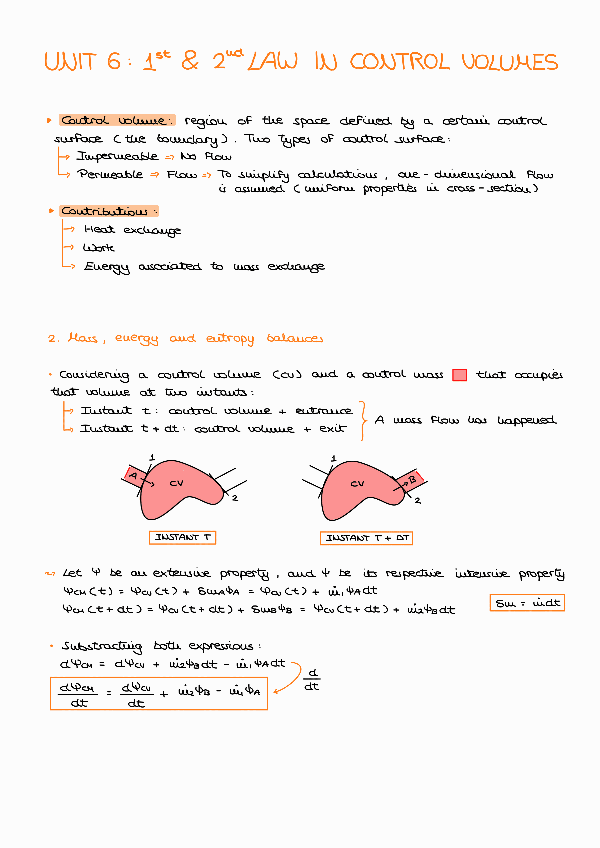 UNIT 6: 1st & 2nd LAW IN CONTROL VOLUMES
Control volume: region of the space defined by a certain control
surface (the boundary). Two types of control surface:
→ Impermeable ⇒ No flow
→ Permeable ⇒ Flow ⇒ To simplify calculations, one-dimensional flow
is assumed (uniform properties in cross-section)
Contributions:
→ Heat exchange
→ Work
→ Energy associated to mass exchange
2. Mass, energy and entropy balances
· Considering a control volume (CV) and a control mass that occupies
that volume at two instants:
→ Instant t: control volume + entrance
→ Instant t + dt: control volume + exit
A mass flow has happened
1
A
CV
2
INSTANT T
1
CV
B
2
INSTANT T + DT
Let Ψ be an extensive property, and ψ be its respective intensive property
ΨCM(t) = ΨCV(t) + δmAψA = ΨCV(t) + ṁ1ψAdt
ΨCM(t+dt) = ΨCV(t+dt) + δmBψB = ΨCV(t+dt) + ṁ2ψBdt
δm = ṁdt
· Substracting both expressions:
dΨCM = dΨCV + ṁ2ψBdt - ṁ1ψAdt
d/dt
dΨCM/dt = dΨCV/dt + ṁ2ψB - ṁ1ψA